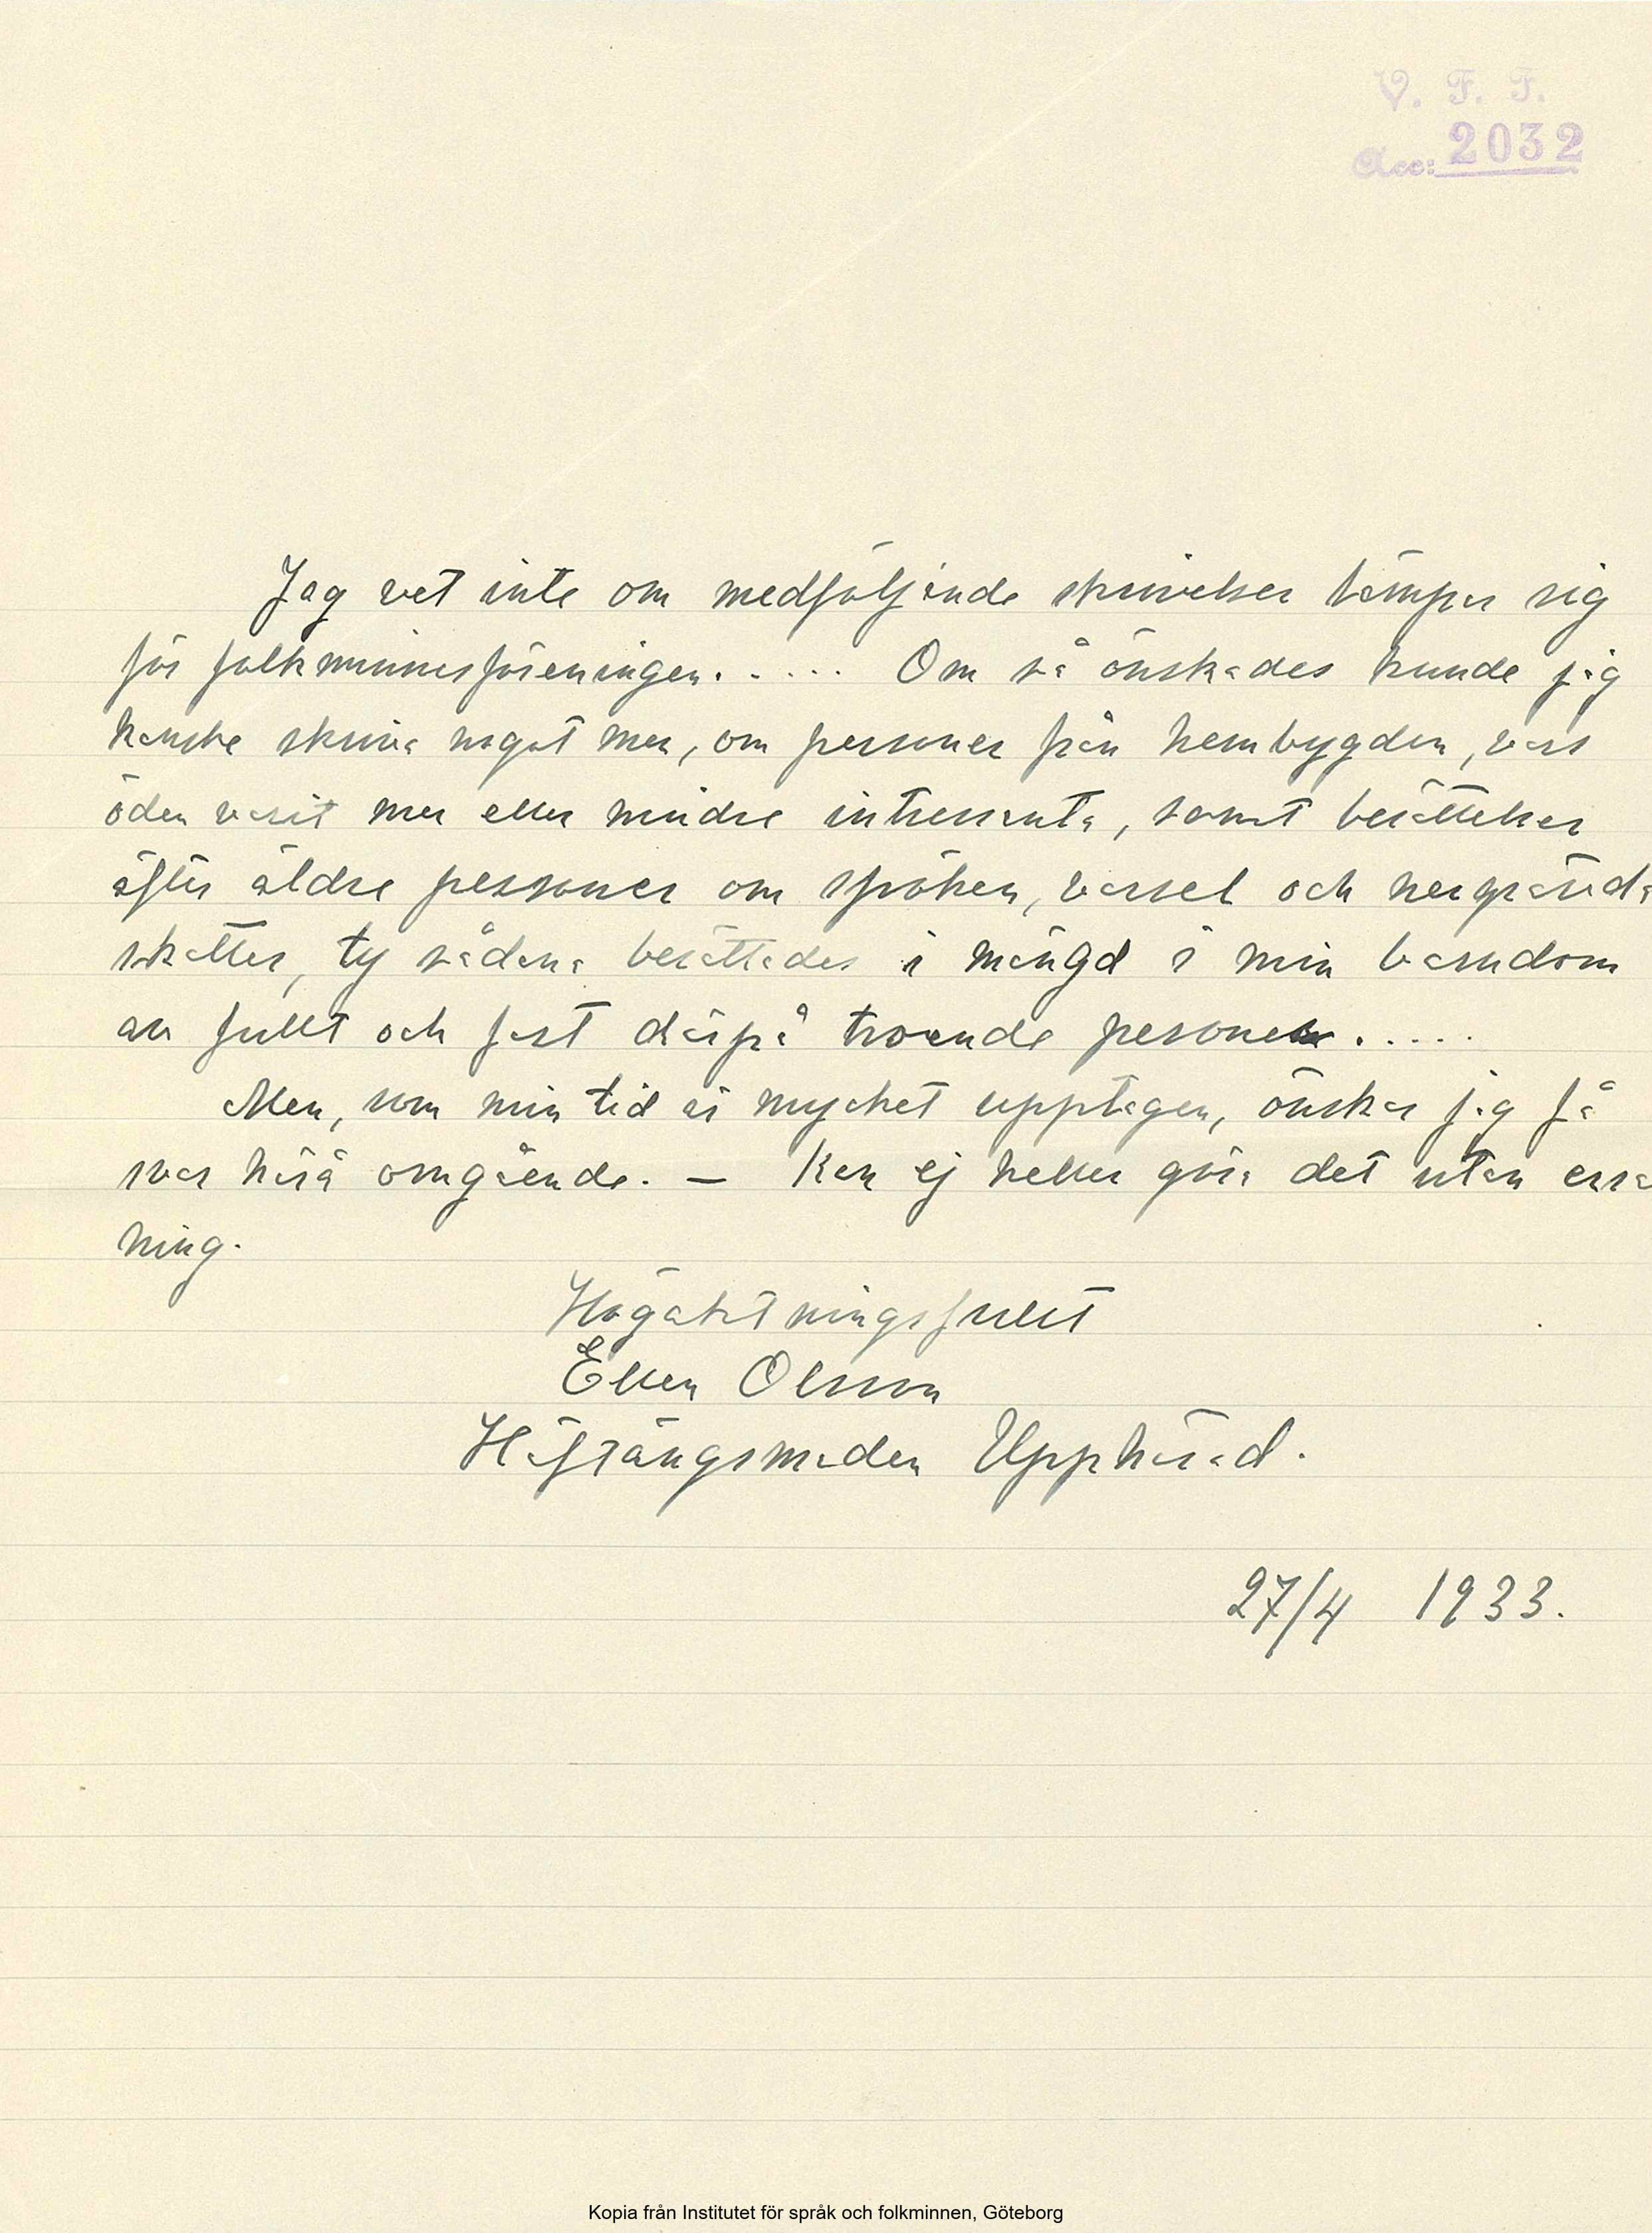 V. F. F.
Acc: 2032
Jag vet inte om medföljande skrivelser lämper sig
för folkminnesföreningen. . . . . Om så önskades kunde jag
kanske skriva något mer, om personer från hembygden, vars
öden varit mer eller mindre intressanta, samt berättelser
äfter äldre personer om spöken, varsel och nergrävda
skatter, ty sådana berättades i mängd i min barndom
av fullt och fast därpå troende personer. . . . .
Men, som min tid är mycket upptagen, önskar jag få
svar härå omgående. — Kan ej heller göra det utan ersä
ning.
Högaktningsfullt
Ellen Olsson
Häftängsmaden Upphärad.
27/4 1933.
Kopia från Institutet för språk och folkminnen, Göteborg